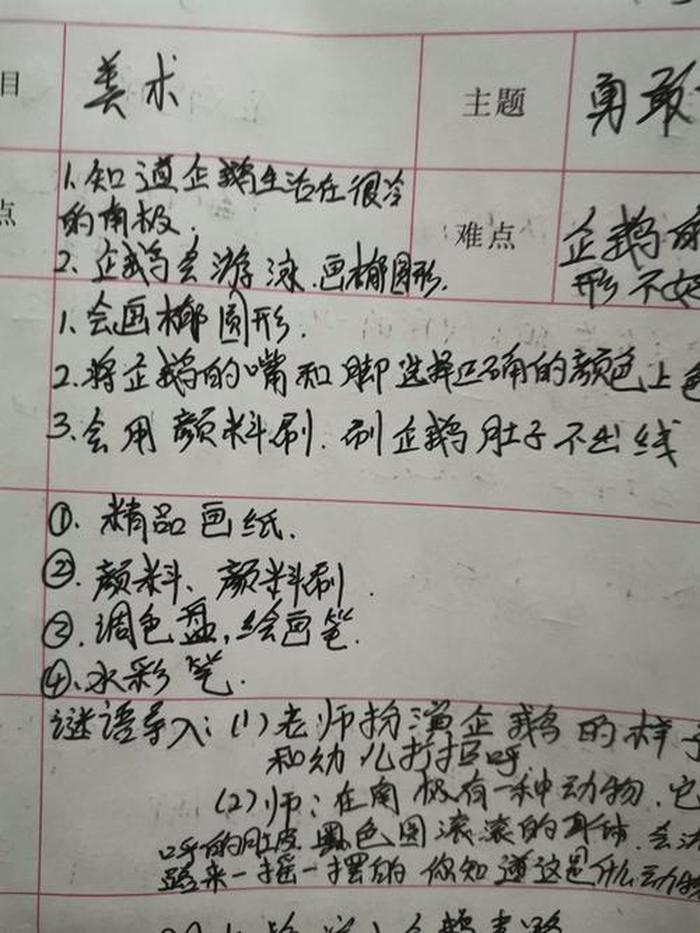 目 美术 主题 勇敢
点 1.知道企鹅生活在很冷
的南极.
2.企鹅会游泳.画椭圆形.
难点 企鹅
形不好
1.会画椭圆形.
2.将企鹅的嘴和脚选择正确的颜色上色
3.会用颜料刷.刷企鹅肚子不出线
①.精品画纸.
②.颜料、颜料刷.
③.调色盘,绘画笔.
④.水彩笔.
谜语导入:(1)老师扮演企鹅的样子
和幼儿打招呼.
(2)师:在南极有一种动物.它
的肚皮.黑色圆滚滚的身体.会
路来一摇一摆的 你知道这是什么动物